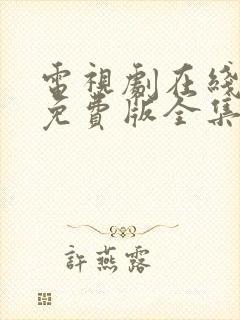 電視劇在綫
免費版全集
許燕露